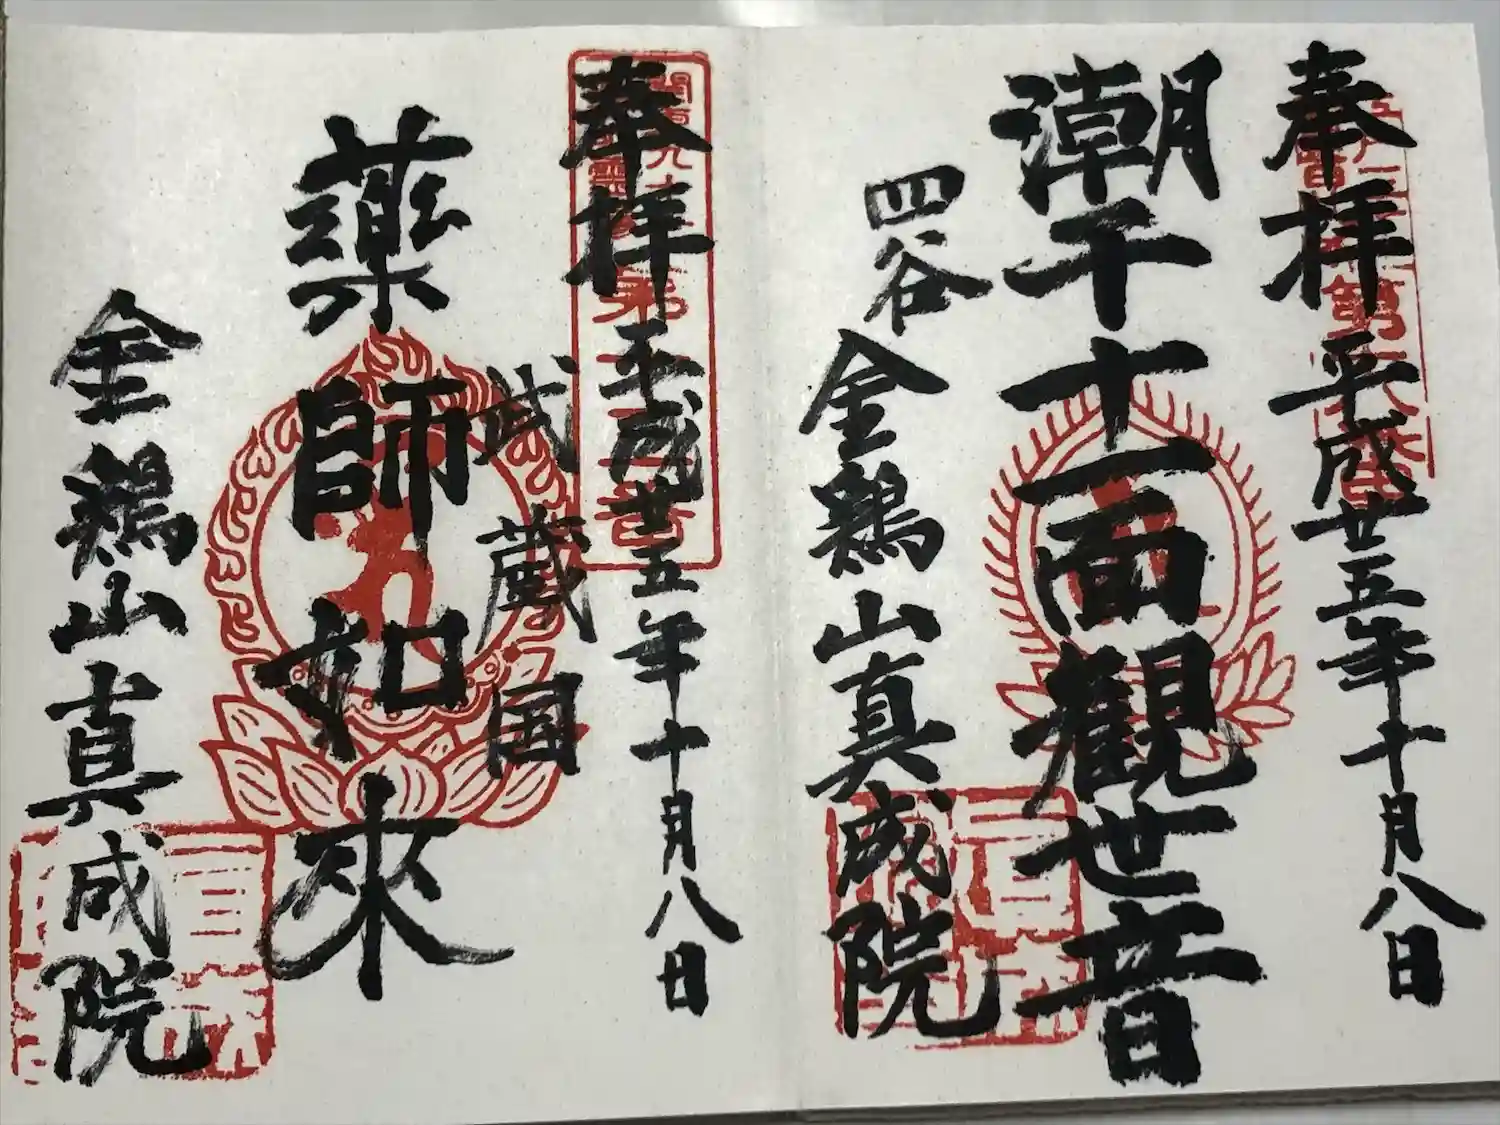 奉拝 平成廿五年十月八日
潮干十一面觀世音
四谷 金鶏山真成院
奉拝 平成廿五年十月八日
武蔵国
薬師如來
金鶏山真成院